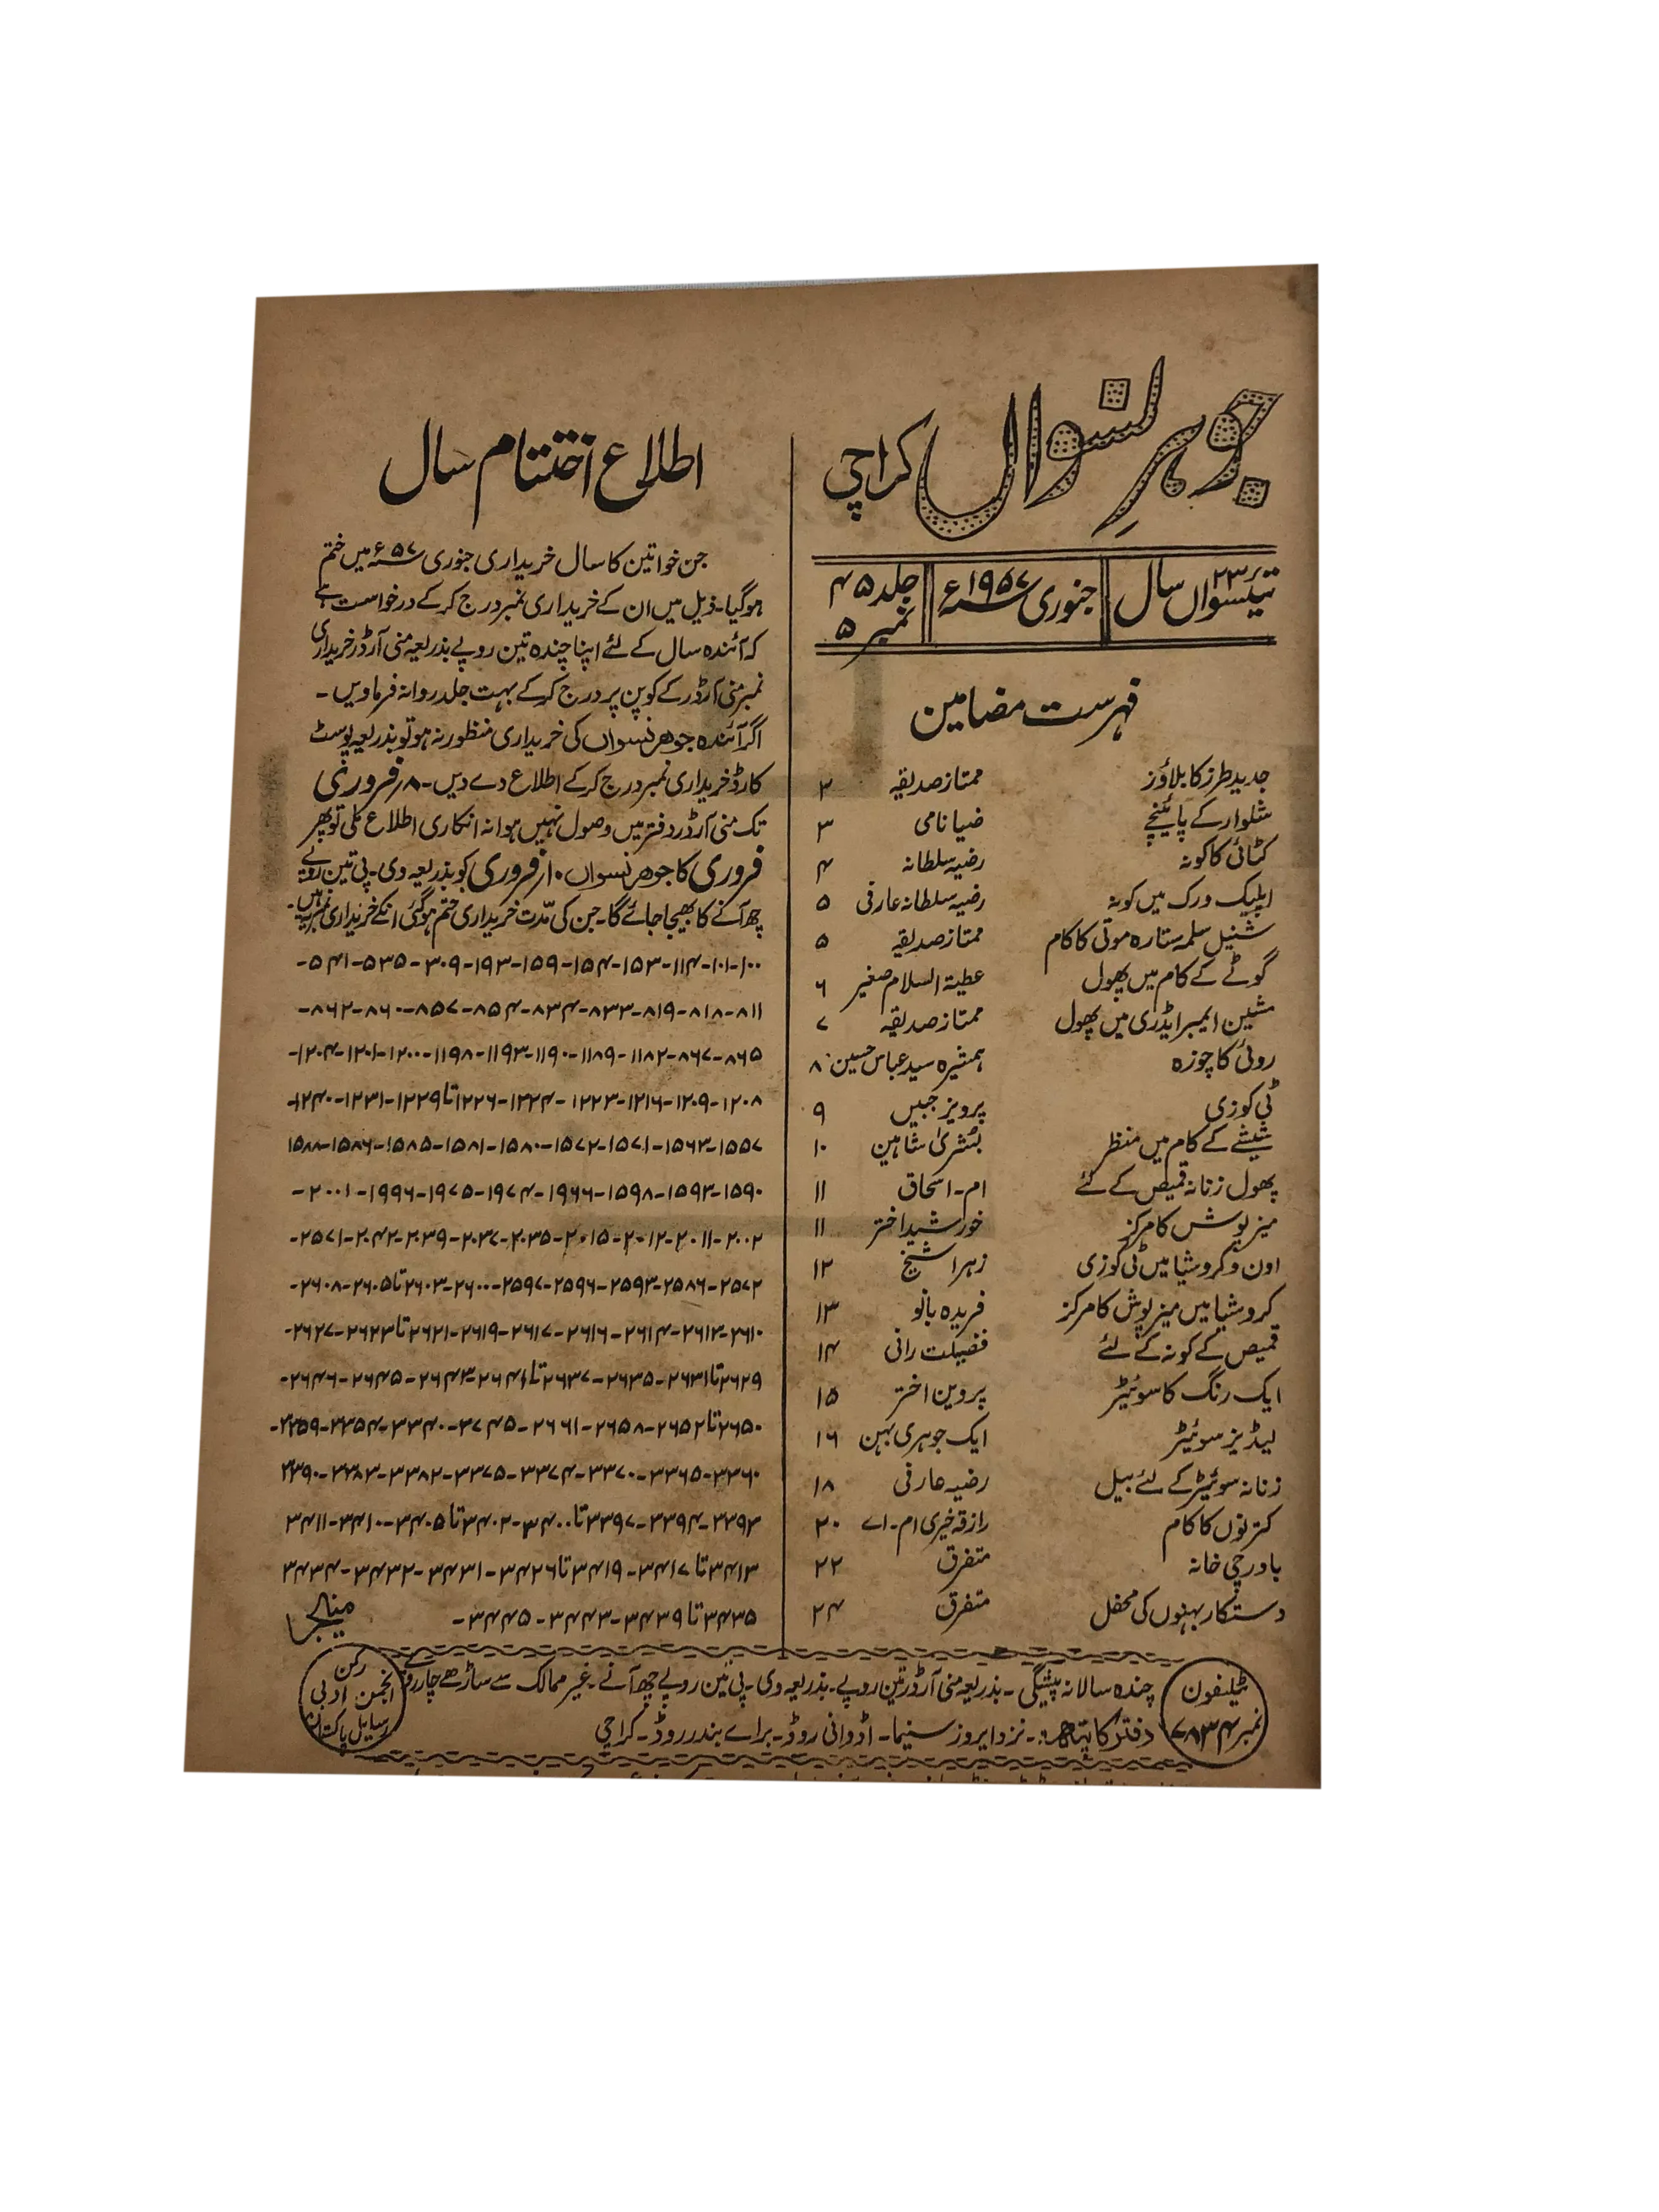 جوہرِ نسواں کراچی
تیئسواں ۲۳ سال
جنوری ۱۹۵۷ء
جلد ۴۵
نمبر ۵
فہرست مضامین
جدید طرز کا بلاؤز ممتاز صدیقہ ۲
شلوار کے پائینچے ضیا نامی ۳
کٹائی کا کونہ رضیہ سلطانہ ۴
اپلیک ورک میں کونہ رضیہ سلطانہ عارفی ۵
شنیل سلمہ ستارہ موتی کا کام ممتاز صدیقہ ۵
گوٹے کے کام میں پھول عطیۃ السلام صغیر ۶
مشین ایمبرائڈری میں پھول ممتاز صدیقہ ۷
روئی کا چوزہ ہمشیرہ سید عباس حسین ۸
ٹی کوزی پرویز جبیں ۹
شیشے کے کام میں منظر بشریٰ شاہین ۱۰
پھول زنانہ قمیص کے لئے ام-اسحاق ۱۱
میز پوش کا مرکز خورشید اختر ۱۱
اون و کروشیا میں ٹی کوزی زہرا شیخ ۱۲
کروشیا میں میز پوش کا مرکز فریدہ بانو ۱۳
قمیص کے کونہ کے لئے فضیلت رانی ۱۴
ایک رنگ کا سوئیٹر پروین اختر ۱۵
لیڈیز سوئیٹر ایک جوہری بہن ۱۶
زنانہ سوئیٹر کے لئے بیل رضیہ عارفی ۱۸
کترنوں کا کام رازقہ خیری ام-اے ۲۰
باورچی خانہ متفرق ۲۲
دستکار بہنوں کی محفل متفرق ۲۴
اطلاع اختتام سال
جن خواتین کا سال خریداری جنوری ۵۷ء میں ختم
ہوگیا۔ ذیل میں ان کے خریداری نمبر درج کرکے درخواست ہے
کہ آئندہ سال کے لئے اپنا چندہ تین روپے بذریعہ منی آرڈر خریداری
نمبر منی آرڈر کے کوپن پر درج کرکے بہت جلد روانہ فرماویں۔
اگر آئندہ جوہر نسواں کی خریداری منظور نہ ہو تو بذریعہ پوسٹ
کارڈ خریداری نمبر درج کرکے اطلاع دے دیں۔ ۸ر فروری
تک منی آرڈر دفتر میں وصول نہیں ہوا نہ انکاری اطلاع ملی تو پھر
فروری کا جوہر نسواں ۱۰ر فروری کو بذریعہ وی۔پی تین روپے
چھ آنے کا بھیجا جائے گا۔ جن کی مدّت خریداری ختم ہوگئی انکے خریداری نمبر یہ ہیں۔
۱۰۰-۱۰۱-۱۱۴-۱۵۳-۱۵۴-۱۵۹-۱۹۳-۳۰۹-۵۳۵-۵۴۱-
۸۱۱-۸۱۸-۸۱۹-۸۳۳-۸۳۴-۸۵۴-۸۵۷-۸۶۰-۸۶۲-
۸۶۵-۸۶۷-۱۱۸۲-۱۱۸۹-۱۱۹۰-۱۱۹۳-۱۱۹۸-۱۲۰۰-۱۲۰۱-۱۲۰۴-
۱۲۰۸-۱۲۰۹-۱۲۱۶-۱۲۲۳-۱۲۲۴-۱۲۲۶تا۱۲۲۹-۱۲۳۱-۱۲۴۰-
۱۵۵۷-۱۵۶۳-۱۵۷۱-۱۵۷۲-۱۵۸۰-۱۵۸۱-۱۵۸۵-۱۵۸۶-۱۵۸۸
۱۵۹۰-۱۵۹۳-۱۵۹۸-۱۹۶۶-۱۹۷۴-۱۹۷۵-۱۹۹۶-۲۰۰۱-
۲۰۰۲-۲۰۱۱-۲۰۱۲-۲۰۱۵-۲۰۳۵-۲۰۳۷-۲۰۳۹-۲۰۴۲-۲۵۷۱-
۲۵۷۲-۲۵۸۶-۲۵۹۳-۲۵۹۶-۲۵۹۷-۲۶۰۰-۲۶۰۳تا۲۶۰۵-۲۶۰۸-
۲۶۱۰-۲۶۱۳-۲۶۱۴-۲۶۱۶-۲۶۱۷-۲۶۱۹-۲۶۲۱تا۲۶۲۳-۲۶۲۷-
۲۶۲۹تا۲۶۳۱-۲۶۳۵-۲۶۳۷تا۲۶۴۱-۲۶۴۳-۲۶۴۵-۲۶۴۶-
۲۶۵۰تا۲۶۵۲-۲۶۵۸-۲۶۶۱-۲۷۴۵-۳۳۴۰-۳۳۵۴-۳۳۵۹-
۳۳۶۰-۳۳۶۵-۳۳۷۰-۳۳۷۴-۳۳۷۵-۳۳۸۲-۳۳۸۳-۳۳۹۰
۳۳۹۳-۳۳۹۴-۳۳۹۷تا۳۴۰۰-۳۴۰۲تا۳۴۰۵-۳۴۱۰-۳۴۱۱
۳۴۱۳تا۳۴۱۷-۳۴۱۹تا۳۴۲۶-۳۴۳۱-۳۴۳۲-۳۴۳۴
۳۴۳۵تا۳۴۳۹-۳۴۴۳-۳۴۴۵-
منیجر
ٹیلیفون
نمبر ۷۸۳۴
چندہ سالانہ پیشگی۔ بذریعہ منی آرڈر تین روپے۔ بذریعہ وی۔پی تین روپے چھ آنے۔ غیر ممالک سے ساڑھے چار روپے
دفتر کا پتہ:۔ نزد ایروز سنیما۔ اڈوانی روڈ۔ براے بندر روڈ۔ کراچی
رکن
انجمن ادبی
رسایل پاکستان